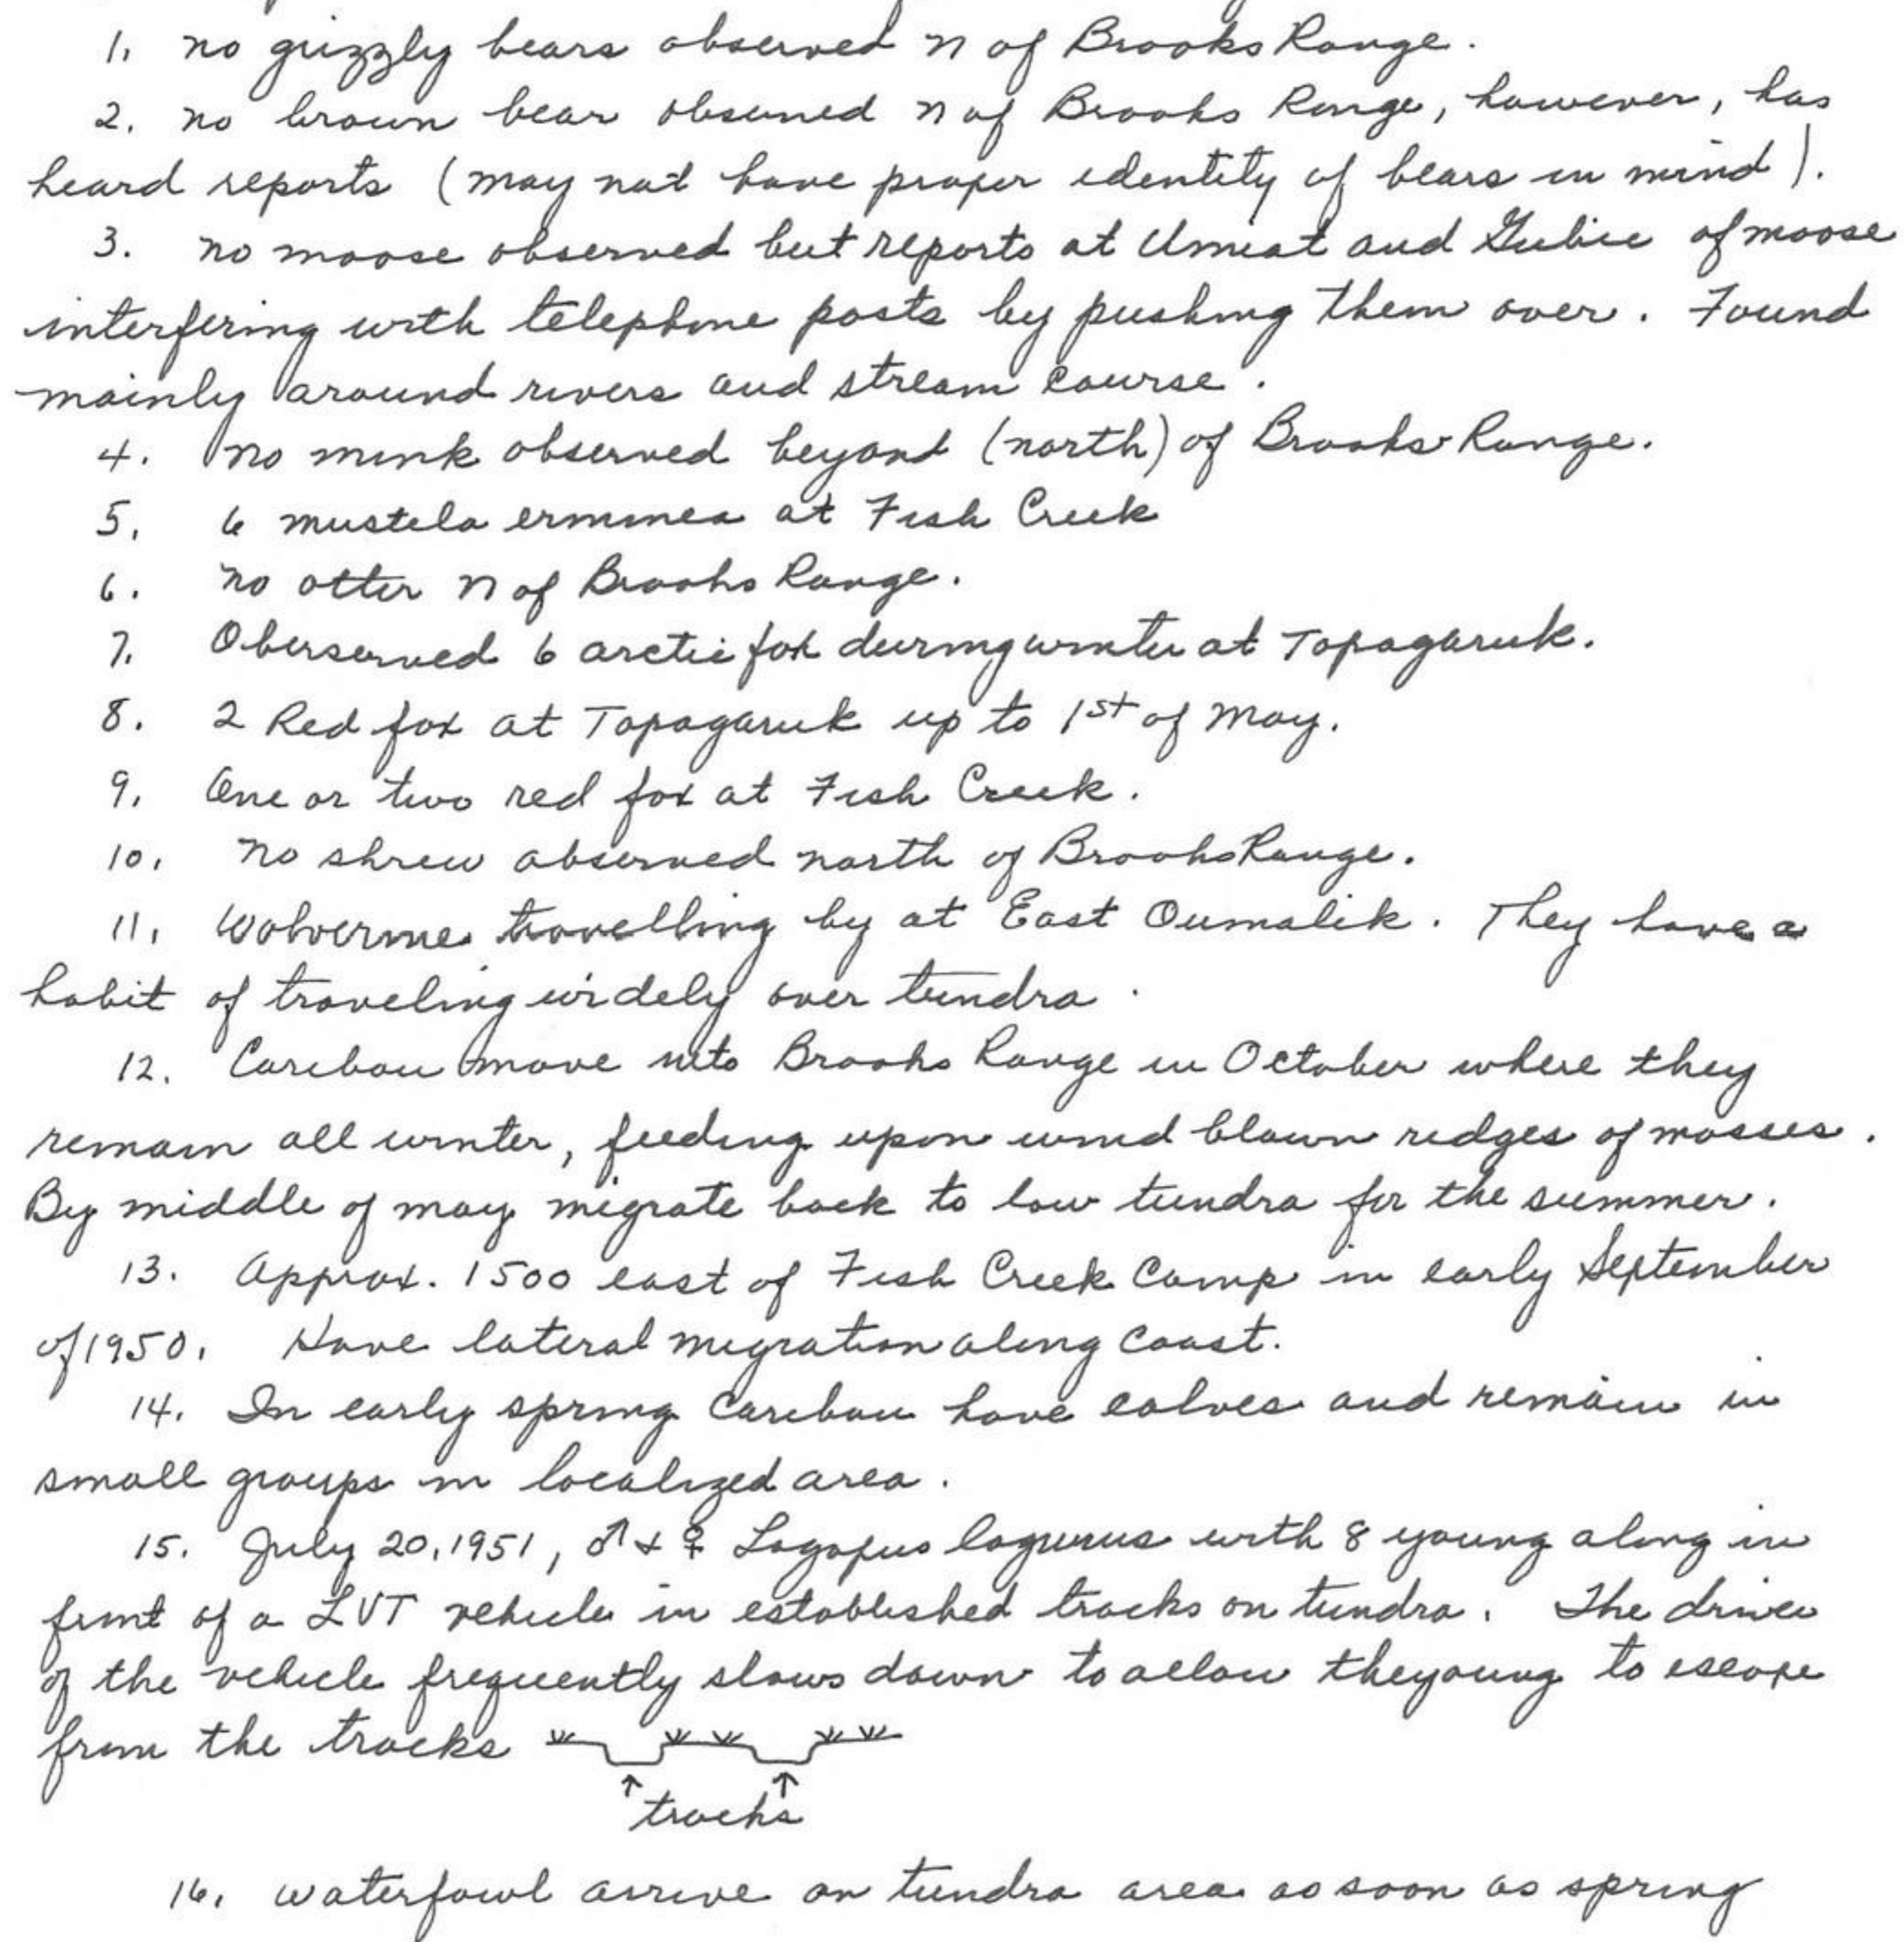 1. no grizzly bears observed N of Brooks Range.
2. no brown bear observed N of Brooks Range, however, has
heard reports (may not have proper identity of bears in mind).
3. no moose observed but reports at Umiat and Gubic of moose
interfering with telephone posts by pushing them over. Found
mainly around rivers and stream course.
4. no mink observed beyond (north) of Brooks Range.
5. 6 mustela erminea at Fish Creek
6. no otter N of Brooks Range.
7. Oberserved 6 arctic fox during winter at Topagaruk.
8. 2 Red fox at Topagaruk up to 1st of May.
9. One or two red fox at Fish Creek.
10. no shrew observed north of Brooks Range.
11. Wolverine travelling by at East Oumalik. They have a
habit of traveling widely over tundra.
12. Caribou move into Brooks Range in October where they
remain all winter, feeding upon wind blown ridges of mosses.
By middle of may migrate back to low tundra for the summer.
13. Approx. 1500 east of Fish Creek Camp in early September
of 1950. Have lateral migration along coast.
14. In early spring Caribou have calves and remain in
small groups in localized area.
15. July 20, 1951, ♂ + ♀ Lagopus lagurus with 8 young along in
front of a LVT vehicle in established tracks on tundra. The driver
of the vehicle frequently slows down to allow the young to escape
from the tracks
↑ ↑
tracks
16. waterfowl arrive on tundra area as soon as spring